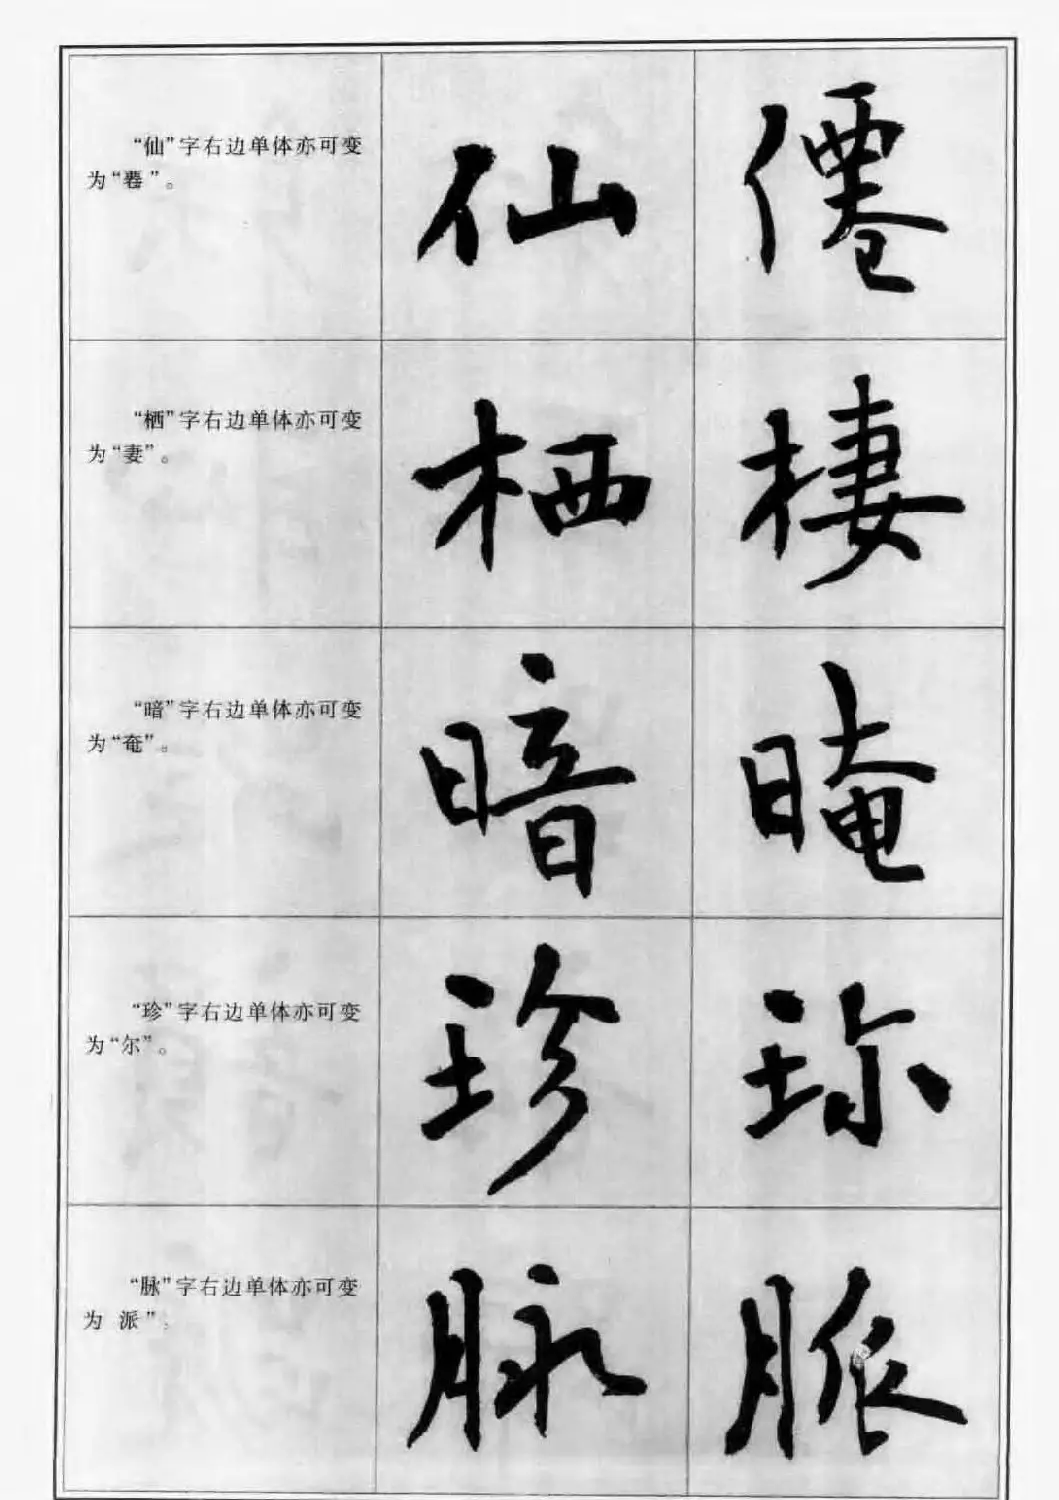 “仙”字右边单体亦可变
为“䙴”。
仙 僊
“栖”字右边单体亦可变
为“妻”。
栖 棲
“暗”字右边单体亦可变
为“奄”。
暗 晻
“珍”字右边单体亦可变
为“尔”。
珍 珎
“脉”字右边单体亦可变
为 派”。
脉 脈